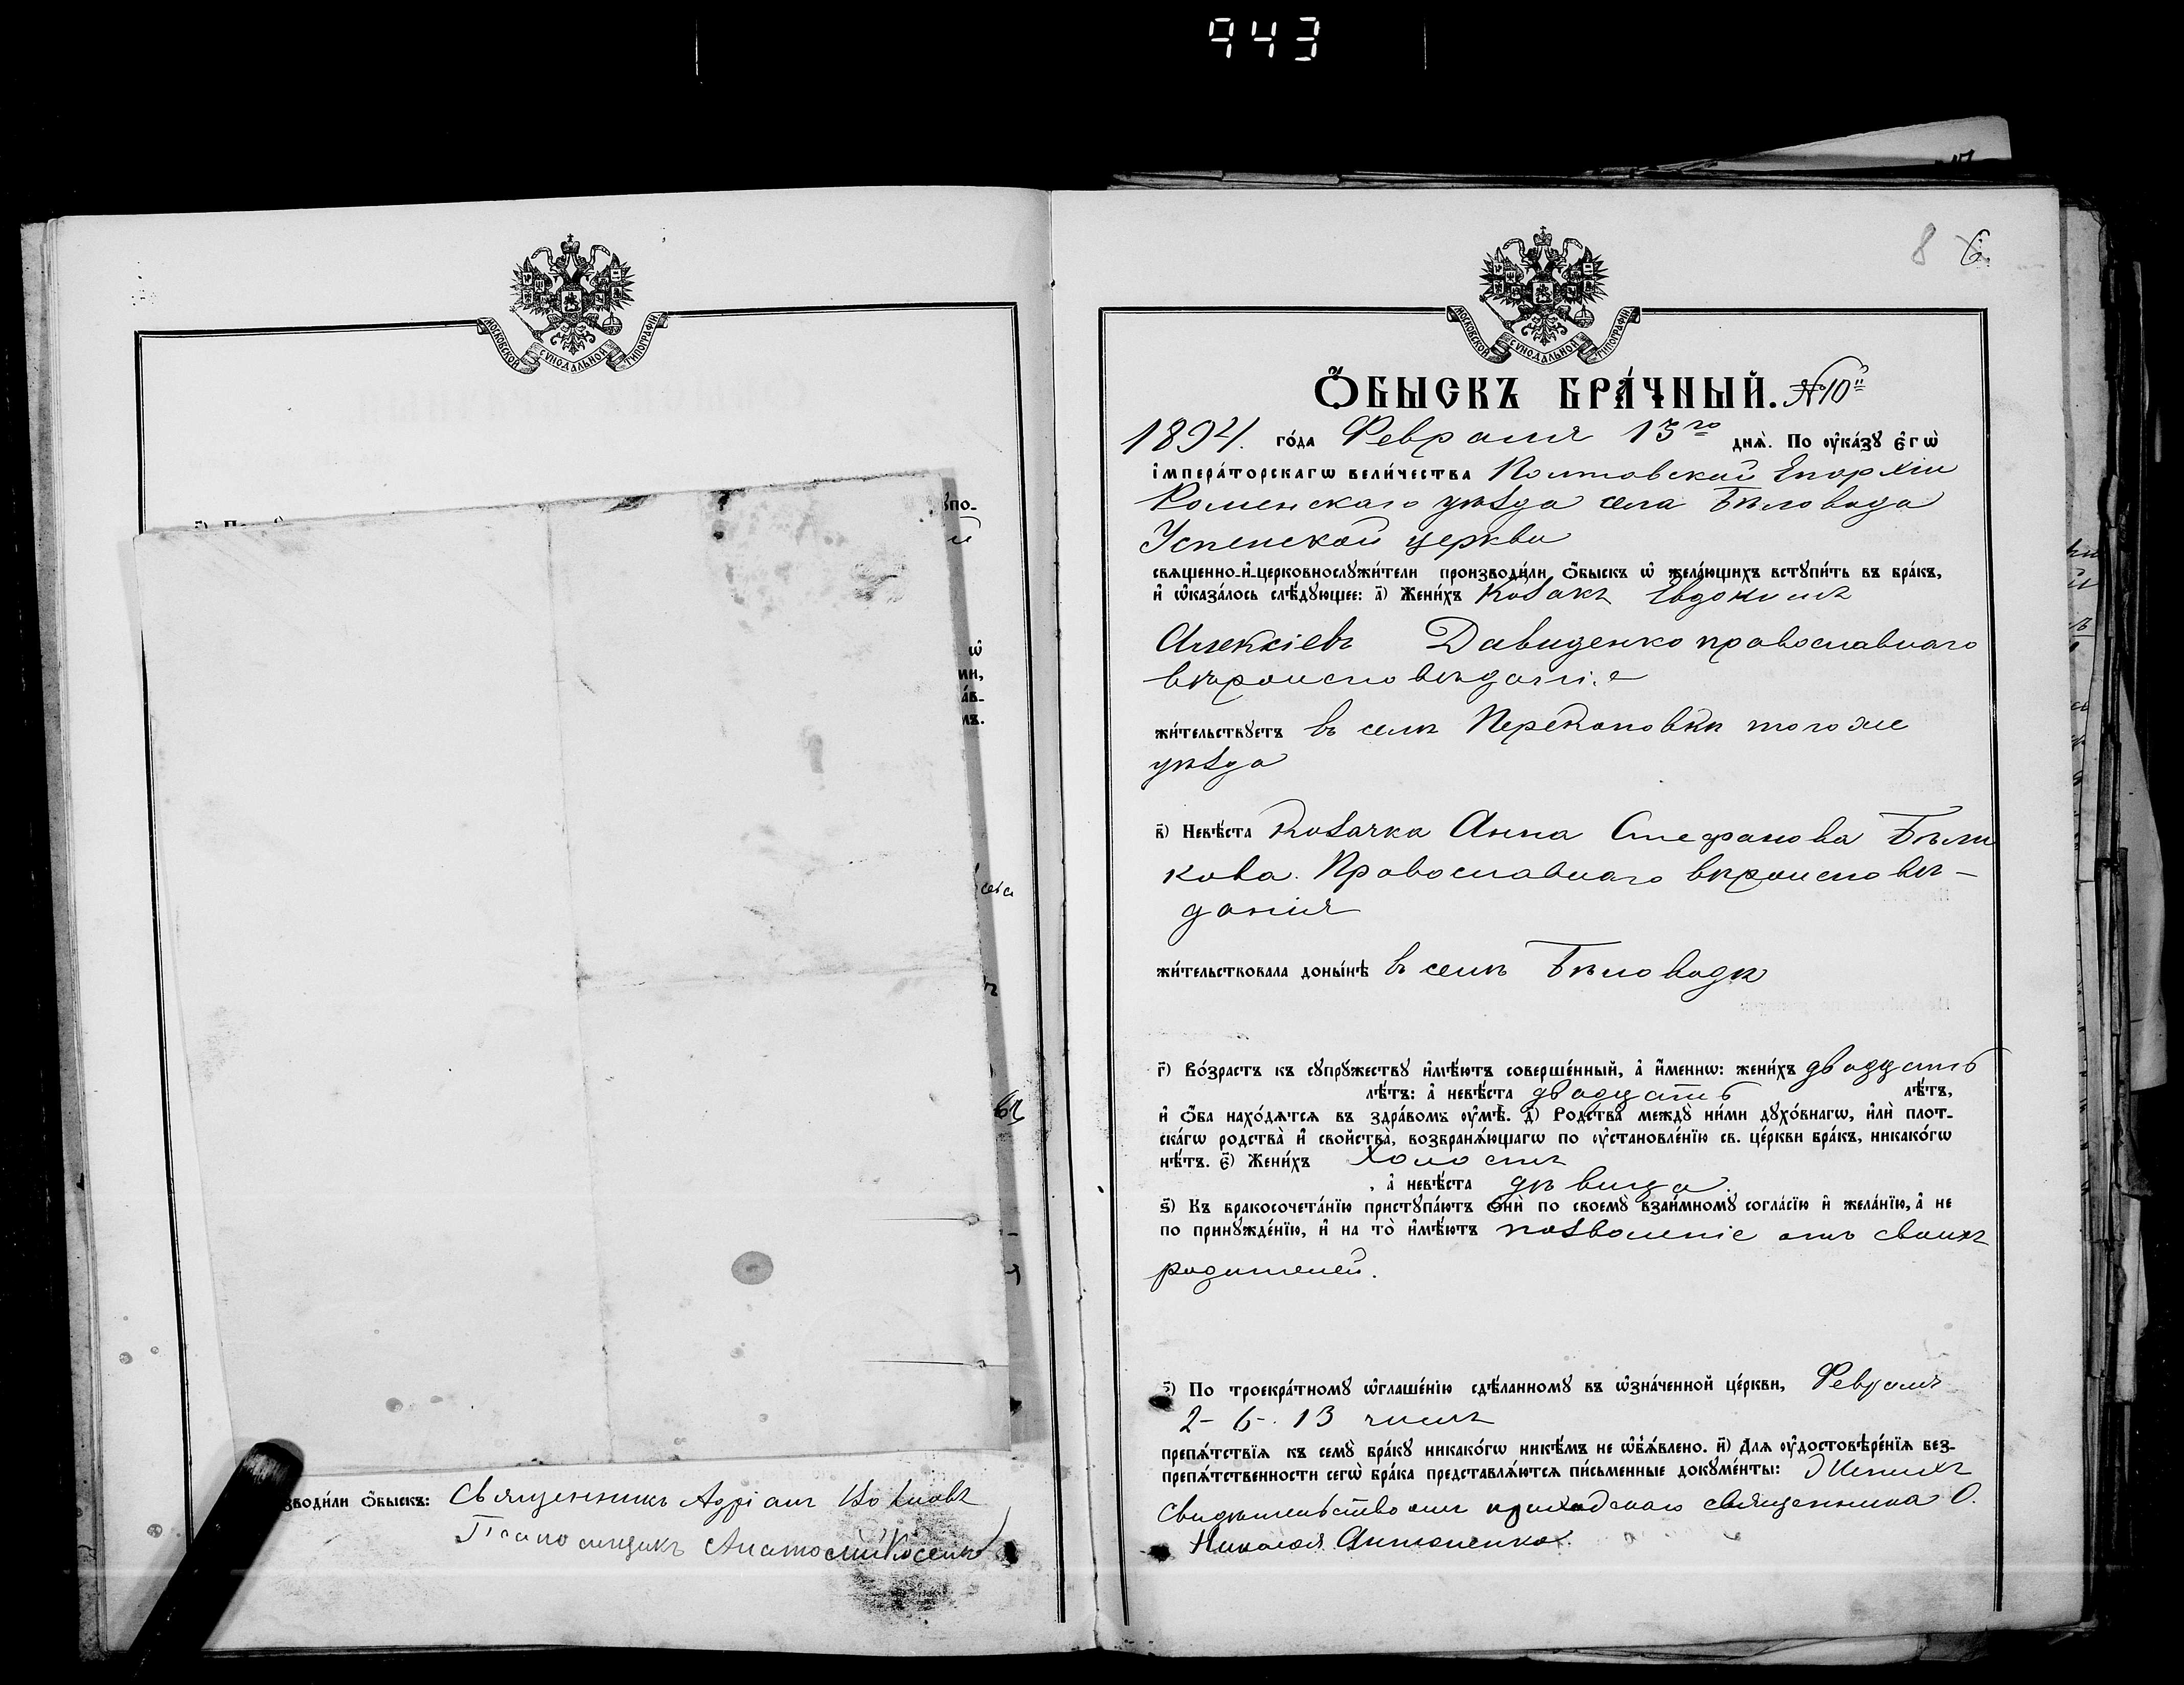 943
МОСКОВСКОЙ СѴНОДАЛЬНОЙ ТИПОГРАФІИ
ѡ
зводи́ли Ѻ҆́быскъ: Священникъ Адріан
Псаломщикъ Анатолій Косенко
8 6
МОСКОВСКОЙ СѴНОДАЛЬНОЙ ТИПОГРАФІИ
Ѻ҆́БЫСКЪ БРА́ЧНЫЙ. №10й
1894. го́да Февраля 13го днѧ̀. По ᲂу҆ка́зꙋ є҆гѡ̀
і҆мпера́торскагѡ вели́чества Полтавской Епархіи
Роменскаго уѣзда села Бѣловода
Успенской церкви
свѧщенно-и҆-церковнослꙋжи́тели производи́ли Ѻ҆́быскъ ѡ҆ жела́ющихъ встꙋпи́ть въ бра́къ,
и҆ ѡ҆каза́лось слѣ́дꙋющее: а҃) Жени́хъ Козакъ Евдокимъ
Алексіевъ Давиденко православнаго
вѣроисповѣданіе
жи́тельствꙋетъ въ селѣ Перекоповки тогоже
уѣзда
в҃) Невѣ́ста Козачка Анна Стефанова Бѣли
кова. Православнаго вѣроисповѣ-
данія
жи́тельствовала доны́нѣ в селѣ Бѣловодѣ
г҃) Во́зрастъ къ сꙋпрꙋ́жествꙋ и҆мѣ́ютъ соверше́нный, а҆ и҆́меннѡ: жени́хъ двадцать
лѣ́тъ: а҆ невѣ́ста двадцать лѣ́тъ,
и҆ Ѻ҆́ба нахо́дѧтсѧ въ здра́вомъ ᲂу҆мѣ̀. д҃) Родства̀ междꙋ̀ ни́ми дꙋхо́внагѡ, и҆лѝ плот-
ска́гѡ родства̀ и҆ свойства̀, возбранѧ́ющагѡ по ᲂу҆становле́нїю св. це́ркви бра́къ, никако́гѡ
нѣ́тъ. є҃) Жени́хъ Холостъ
, а҆ невѣ́ста дѣвица.
ѕ҃) Къ бракосочета́нїю пристꙋпа́ютъ Ѻ҆нѝ по своемꙋ̀ взаи́мномꙋ согла́сїю и҆ жела́нїю, а҆ не
по принꙋжде́нїю, и҆ на то̀ и҆мѣ́ютъ позволеніе отъ своихъ
родителей.
з҃) По троекра́тномꙋ ѡ҆глаше́нїю сдѣ́ланномꙋ въ ѡ҆зна́ченной це́ркви, Февраля
2- 6-. 13 числъ
препѧ́тствїѧ къ семꙋ̀ бра́кꙋ никако́гѡ никѣ́мъ не ѡ҆б̾ѧ́влено. и҃) Длѧ ᲂу҆достовѣре́нїѧ без-
препѧ́тственности сегѡ̀ бра́ка представлѧ́ютсѧ пи́сьменные докꙋме́нты: Женихъ
Свидѣтельство отъ приходскаго священника О.
Николая Антоненка.